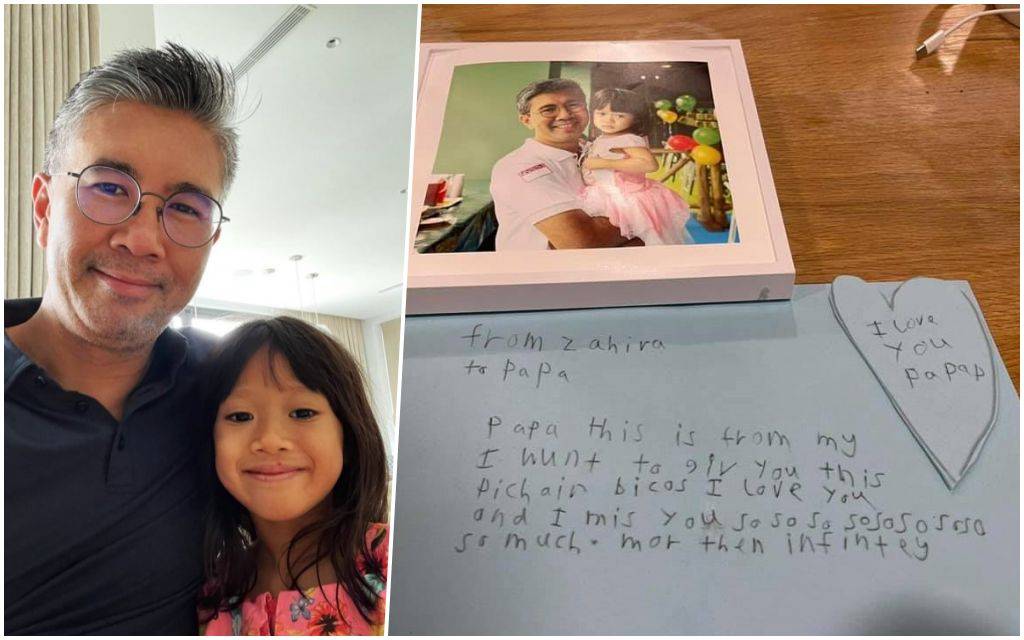 from zahira
to papa
I love
you
papap
Papa this is from my
I wunt to giv you this
Pichair bicos I love you
and I mis you so so so sososo soso
so much. mor then infintey